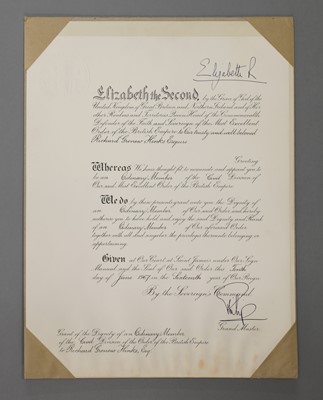 Elizabeth R
Elizabeth the Second, by the Grace of God of the
United Kingdom of Great Britain and Northern Ireland and of Her
other Realms and Territories Queen, Head of the Commonwealth,
Defender of the Faith and Sovereign of the Most Excellent
Order of the British Empire to Our trusty and well beloved
Richard Esquire
Greeting
Whereas We have thought fit to nominate and appoint you to
be an Ordinary Member of the Civil Division of
Our said Most Excellent Order of the British Empire
We do by these presents grant unto you the Dignity of
an Ordinary Member of Our said Order and hereby
authorise you to have hold and enjoy the said Dignity and Rank
of an Ordinary Member of Our aforesaid Order
together with all and singular the privileges thereunto belonging or
appertaining.
Given at Our Court at Saint James's under Our Sign
Manual and the Seal of Our said Order this Tenth
day of June 1967 in the Sixteenth year of Our Reign.
By the Sovereign's Command.
Grand Master.
Grant of the Dignity of an Ordinary Member
of the Civil Division of the Order of the British Empire
to Richard Esq.